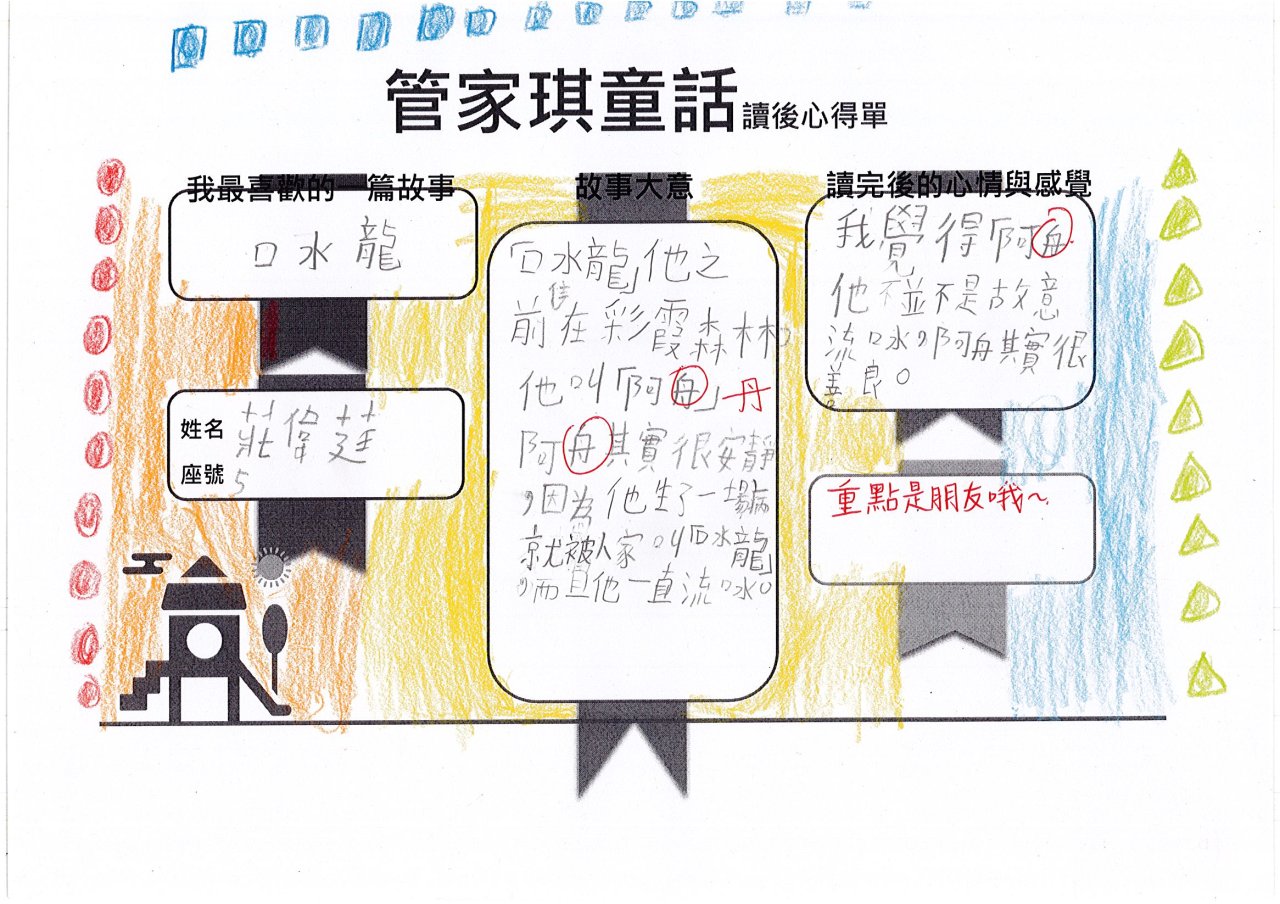 管家琪童話讀後心得單
我最喜歡的一篇故事
口水龍
姓名 莊偉廷
座號 5
故事大意
「口水龍」他之
前住在彩霞森林
他叫「阿舟」丹
阿舟其實很安靜
,因為他生了一場病
就被人家叫「口水龍」
,而且他一直流口水。
讀完後的心情與感覺
我覺得「阿舟
他不並不是故意
流口水,阿舟其實很
善良。
重點是朋友哦~